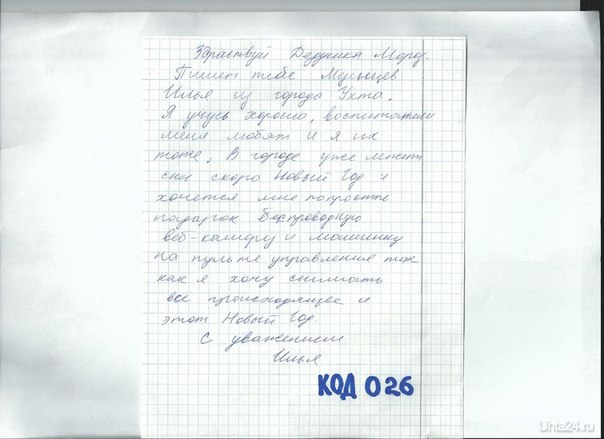 Здраствуй Дедушка Мороз.
Пишет тебе
Илья из города Ухта.
Я учусь хорошо, воспитатели
меня любят и я их
тоже. В городе уже лежит
снег скоро Новый Год и
хочется мне попросить
подарок Беспроводную
веб-камеру и машинку
на пульте управления так
как я хочу снимать
все происходящее и
этот Новый Год
С уважением
Илья
КОД 026
Uhta24.ru